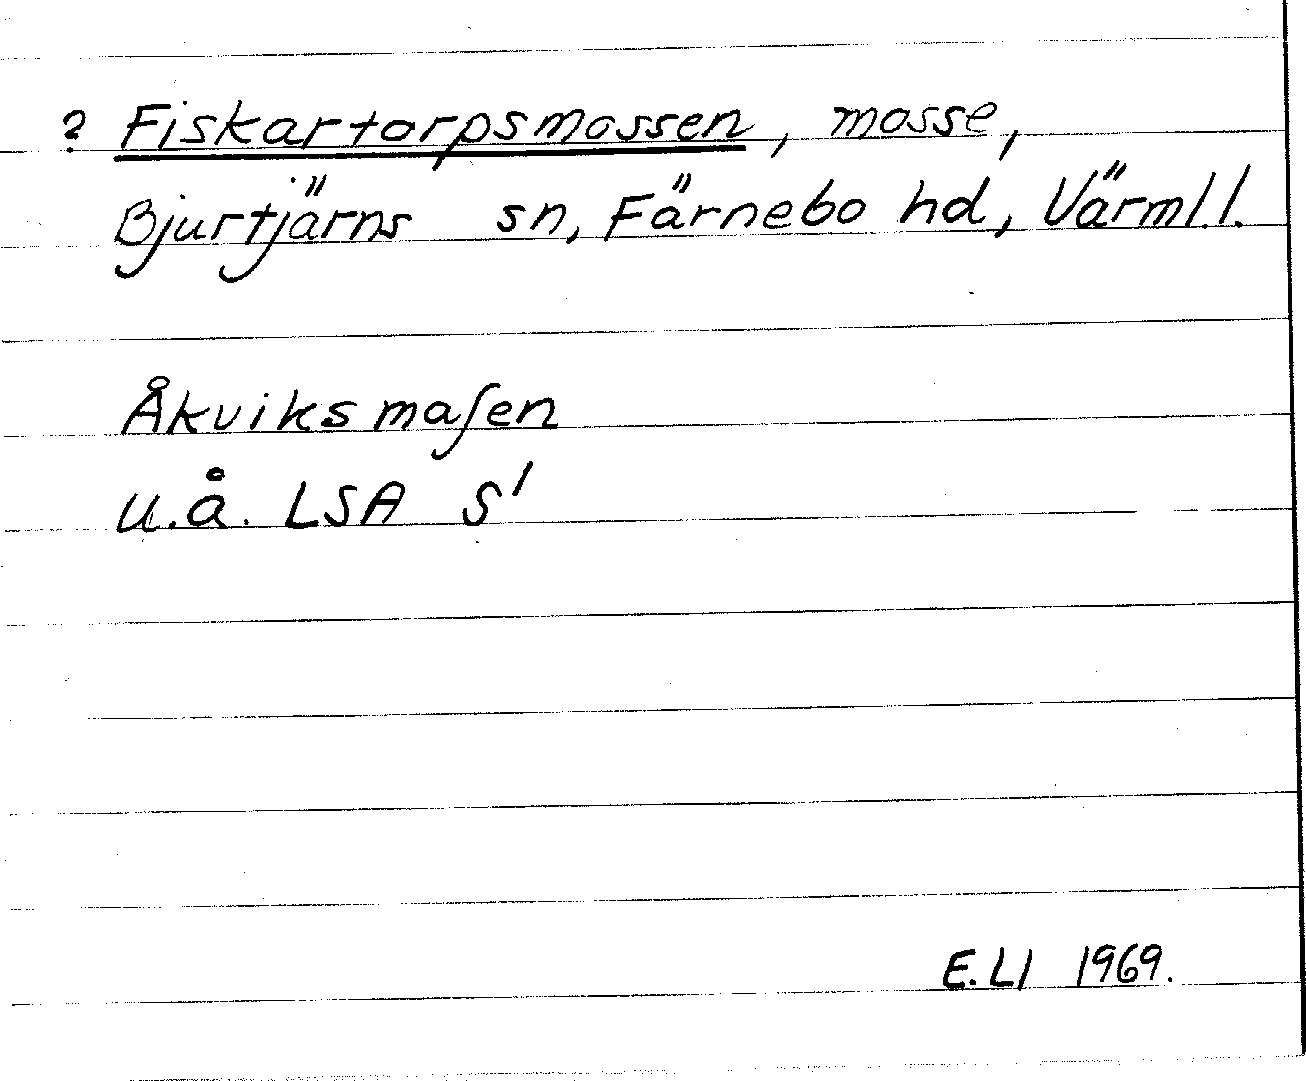 ? Fiskartorpsmossen, mosse,
Bjurtjärns sn, Färnebo hd, Värml.l.
Åkviksmaſen
u.å. LSA S'
E.Ll 1969.